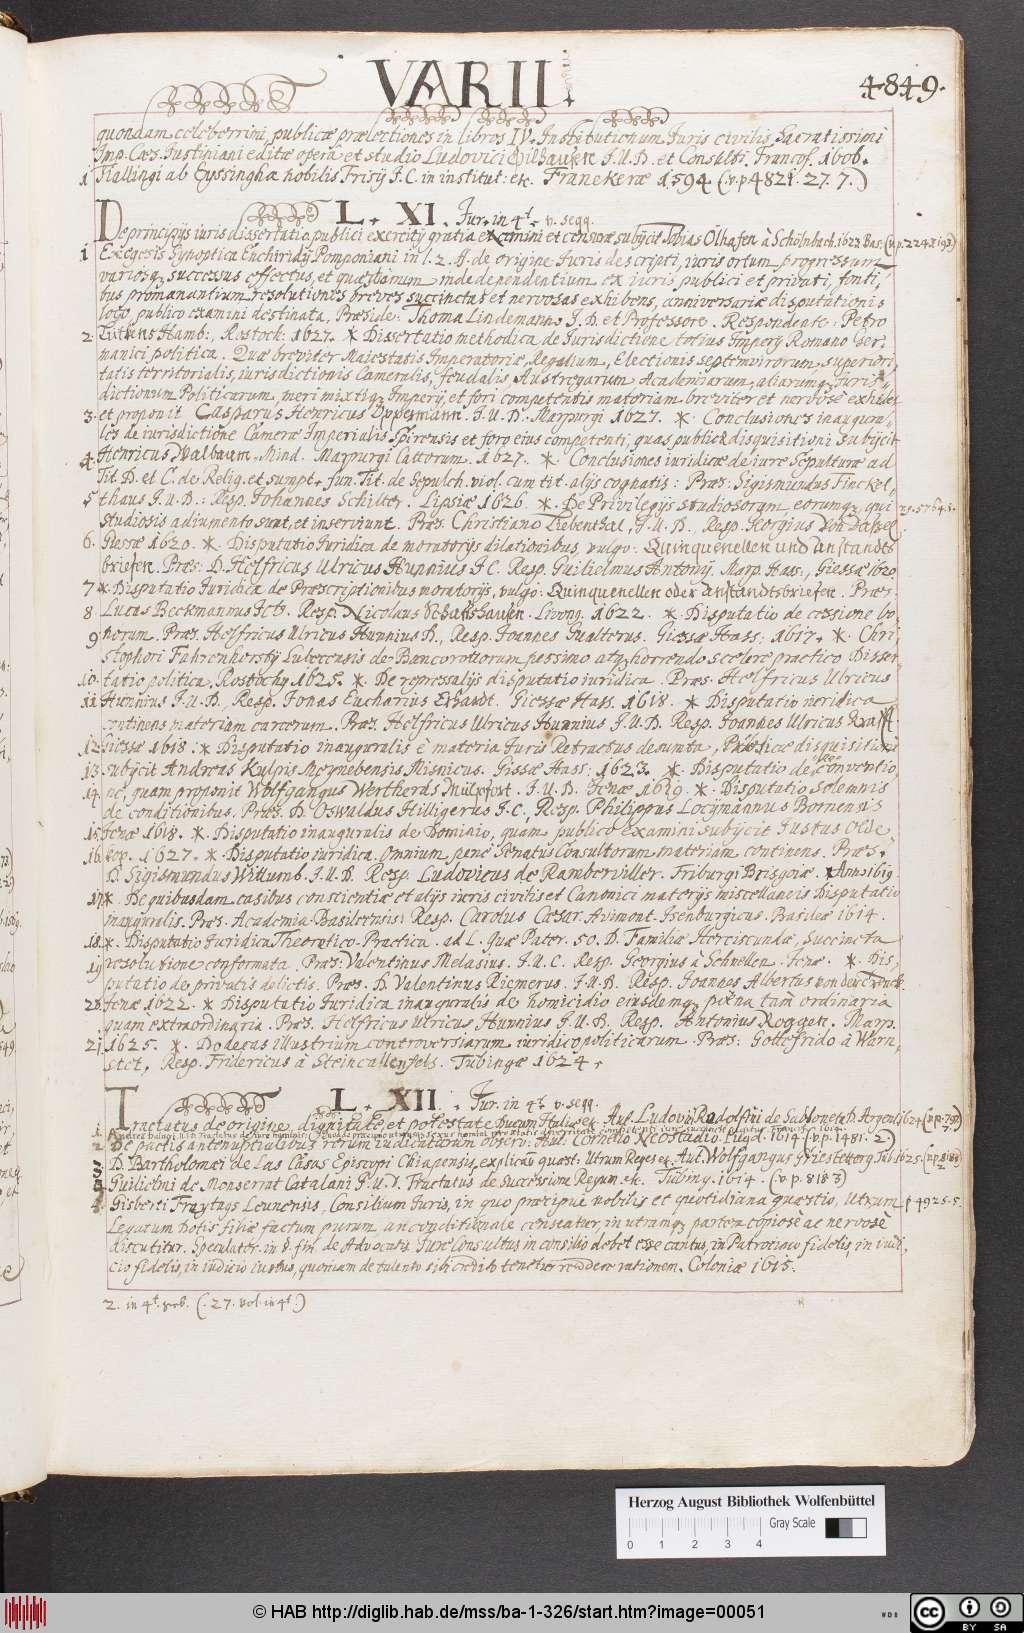 VARII.
4849.
quondam celeberrimi, publicæ prælectiones in libros IV. Institutionum Juris civilis Sacratissimi
Imp. Cæs. Justiniani editæ opera et studio Ludovici J.U.D. et Consulti. Francof. 1606.
1 Hallingi ab Eyssinghæ nobilis Frisij J.C. in institut: etc. Franekeræ 1594 (v.p 4821. 27. 7.)
L. XI. Jur. in 4t. v. seqq.
De principijs iuris dissertatio publici exercitij gratia examini et censuræ subijcit Tobias Olhafen à Schölnbach. 1623 Bas: (v.p. 224. 193)
1 Exegesis Synoptica Enchiridij Pomponiani in l. 2. ff. de origine Juris descripti, iuris ortum progressum
variosq; successus effectus, et quæstionum inde dependentium ex iuris publici et privati, fonti,
bus promanantium resolutiones breves succinctas et nervosas exhibens, anniversariæ disputationis
loco publico examini destinata. Præside: Thoma Lindemanno J.D. et Professore. Respondente: Petro
2. Hamb:, Rostoch: 1627. * Dissertatio methodica de Jurisdictione totius Imperij Romano Ger:
manici politica. Quæ breviter Maiestatis Imperatoriæ, Regalium, Electionis septemvirorum, superiori
tatis territorialis, iurisdictionis Cameralis, feudalis, Austregarum Academiarum, aliarumq; Juris,,
dictionum Politicarum, meri mixtiq; Imperij, et fori competentis materiam breviter et nervose exhibet
3. et proponit Casparus Henricus Oppermann. J.U.D. Marpurgi 1627. * Conclusiones inaugura,,
les de iurisdictione Cameræ Imperialis Spirensis et foro eius competenti, quas publicæ disquisitioni subijcit
4. Henricus Walbaum. Mind. Marpurgi Cattorum. 1627. * Conclusiones iuridicæ de iure Sepulturæ ad
Tit D. et C. de Relig. et sumpt. fun. Tit. de sepulch. viol. cum tit. alijs cognatis: Præs: Sigismundus Finckel,,
5 thaus J.U.D.: Resp. Johannes Schilter. Lipsiæ 1626 * De Privilegijs studiosorum eorumq; qui 29. 5764. 5.
studiosis adiumento sunt, et inserviunt. Præs. Christiano Liebenthal, J.U.D., Resp. Georgius von Dassel
6. Giessæ 1620. * Disputatio Juridica de moratorijs dilationibus, vulgo: Quinquenellen und Anstandts
briefen. Præs: D. Helfricus Ulricus Hunnius J.C. Resp. Guilielmus Antonij. Marp. Hass:, Giessæ 1620
7 * Disputatio Juridica de Præscriptionibus moratorijs, vulgo: Quinquenellen oder Anstandtsbriefen. Præs:
8. Lucas Beckmannus Icts. Resp. Nicolaus Schaffshausen. 1622. * Disputatio de cessione bo
9 norum. Præs. Helfricus Ulricus Hunnius D., Resp. Joannes Gualterus. Giessæ Hass: 1617. * Chri,
stophori Fahrenhorstij Lubecensis de Bancorottorum pessimo atq; horrendo scelere practico Disser,
10. tatio politica, Rostochij 1625. * De repressalijs disputatio iuridica. Præs. Helfricus Ulricus
11 Hunnius J.U.D. Resp. Jonas Eucharius Erhardt. Giessæ Hass. 1618. * Disputatio iuridica
continens materiam carcerum. Præs. Helfricus Ulricus Hunnius J.U.D. Resp. Joannes Ulricus Krafft
12. Giessæ 1618: * Disputatio inauguralis è materia Juris Retractus desumta, Publicæ disquisitioni
13. subijcit Andreas Kulpis Misnicus. Giessæ Hass: 1623. * Disputatio de conventio
14. ne, quam proponit Wolfgangus Wertherds Mülpfort. J.U.D. Jenæ 1619. * Disputatio solemnis
de conditionibus. Præs. D. Oswaldus Hilligerus J.C., Resp. Philippus Locÿmannus Bornensis
15. Jenæ 1618. * Disputatio inauguralis de Dominio, quam publico examini subijcit Justus Olde,
16. kop. 1627. * Disputatio iuridica. Omnium pene Senatus Consultorum materiam continens. Præs.
D. Sigismundus Witlumb. J.U.D. Resp. Ludovicus de Ramberviller. Friburgi Brisgoiæ. Anno 1619.
17 * De quibusdam casibus conscientiæ et alijs iuris civilis et Canonici materijs miscellaneis Disputatio
inauguralis. Præs. Academia Basileensis: Resp. Carolus Cæsar. Avimont. Isenburgicus. Basileæ 1614.
18. * Disputatio Juridica Theoretico-Practica. ad L. Quæ Pater. 50. D. Familiæ Herciscundæ, Succincta
19 resolutione conformata. Præs: Valentinus Melasius. J.U.C. Resp. Georgius à Schnellen. Jenæ. * Dis,
putatio de privatis delictis. Præs. D. Valentinus Riemerus. J.U.D. Resp. Joannes Albertus von der
20. Jenæ 1622. * Disputatio Juridica inauguralis de homicidio eiusdemq; pœna tam ordinaria
quam extraordinaria. Præs. Helfricus Ulricus Hunnius J.U.D. Resp. Antonius Roggen. Marp.
21 1625. * Dodecas illustrium controversiarum iuridicopoliticarum. Præs: Gottefrido à Warn,
stet, Resp. Fridericus à Steincallenfels. Tubingæ 1624.
L. XII. Jur. in 4t. v. seqq.
Tractatus de origine, dignitate et potestate Ducum Italiæ etc. Aut. Ludovi. Rodolfini de Sabloneta D. Argent. 1624 (v.p. 797)
1.
2 De pactis antenuptialibus rerum iudicatarum observ. Aut. Cornelio Neostadio. Lugd. 1614. (v.p. 1481. 2)
D. Bartholomæi de Las Casas Episcopi Chiapensis, explicatio quæst: Utrum Reges etc. Aut. Wolfgangus Griestetter. Tub. 1625. (v.p. 8183)
Guilielmi de Monserrat Catalani J.U.D. Tractatus de Successione Regum. etc. Tübing. 1614. (v. p. 8183)
Gisberti Freytags Leunensis, Consilium Juris, in quo præcipue nobilis et quotidiana quæstio, Utrum p 4925. 5.
Legatum hoc filiæ factum purum, an conditionale censeatur, in utramq; partem copiosè ac nervosè
discutitur. Speculator. in §. fin. de Advocatis Jure Consultus in consilio debet esse cautus, in Patrocinio fidelis, in iudi,
cio fidelis, in iudicio iustus, quoniam de talento sibi credito tenetur reddere rationem. Coloniæ 1615.
2. in 4t. (. 27. vol. in 4t.)
Herzog August Bibliothek Wolfenbüttel
Gray Scale
0 1 2 3 4
© HAB http://diglib.hab.de/mss/ba-1-326/start.htm?image=00051
WDB
cc BY SA